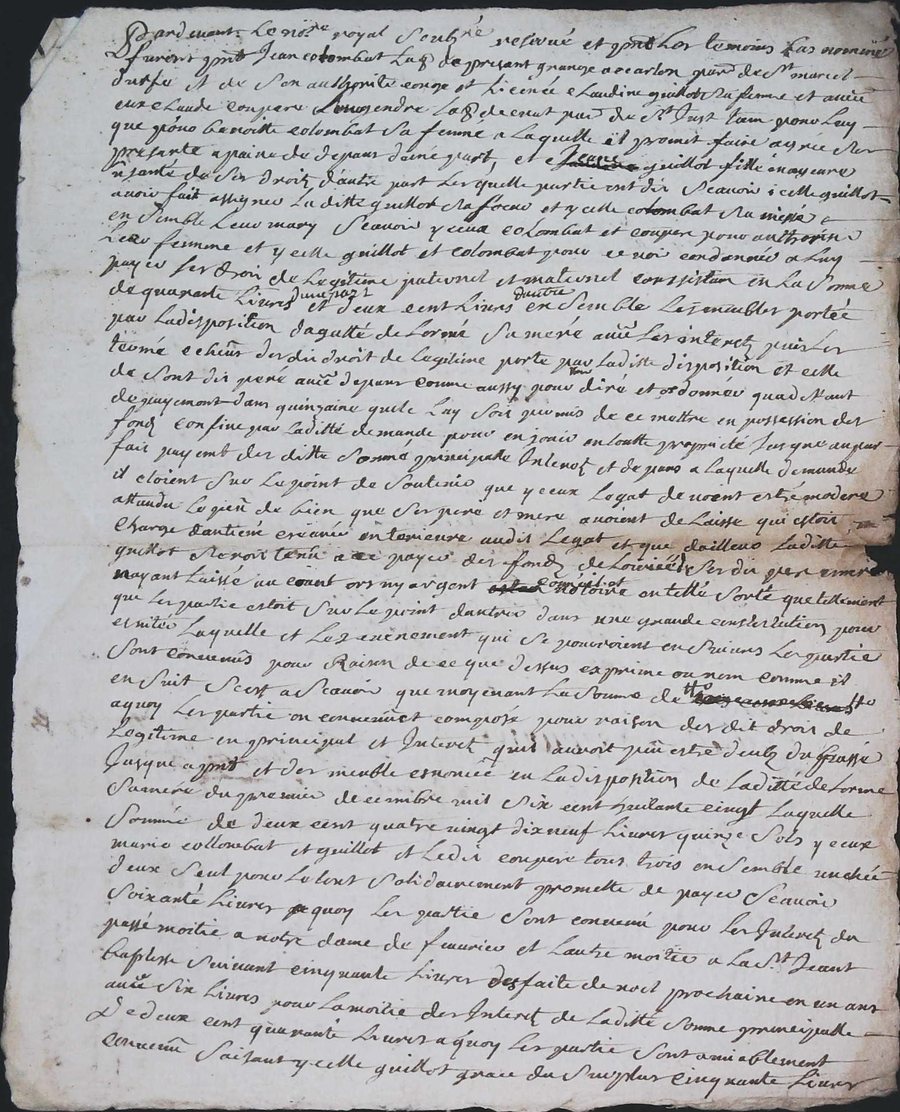 Pardevant Le no.re royal Soubsé reservé et pnt Les temoins bas nommé
furent pnt Jean colombat La8 de present granger a carlon par de St marcel
durfé et de Son authorité congé et Licence Claudine guillot Sa femme et avec
eux Claude coupere gendre La8 de crut par de St Just tam pour Luy
que pour benoitte colombat Sa femme a Laquelle il promet faire agreer Les
presante a paine de depans d'une part, et guillot fille mayeure
usante de Ses droitz d'autre part Lesquelle partie ont dit Scavoir icelle guillot
avoir fait assigner Laditte guillot Sa soeur et ycelle colombat Sa niesse
en Semble Leur mary Scavoir yceux colombat et coupere pour authoriser
Leur femme et ycelle guillot et colombat pour ce voir condamner a Luy
payer Ses droit de Legitime paternel et maternel consistan en La Somme
de quarante Livres d'une part et deux cent Livres d'autre en Semble Les meubles portée
par La disposition d'agatte de Lorme Sa mere avec Les interetz puis Les
terme echeus des dit droit de Legitime porte par Laditte disposition et celle
de Sont dit peré avec depans comme aussy pour voir dire et ordonner qua deffaut
de payement dans quinzaine quele Luy Soit permis de ce mettre en possession des
fondz confine par Laditte demande pour en jouir en toutte propriété Jusque au par-
fait payemt des ditte Somme principalle Interetz et depans a Laquelle demande
il etoient Sur Le point de Soutenir que yceux Legat devoient estre modere
attandu Le peu de bien que Ses pere et mere avoient de Laisse qui estoit
charge d'antiene creance enterieure audit Legat et que dailleur Laditte
guillot Seroit tenu a ce payer des fondz de Ses dit pere
nayant Laissé aucunt or ny argent comme il est notoire en telle Sorte que tellement
que Les partie estoit Sur Le point d'entrer dans une grande constestation pour
eviter Laquelle et Les evenement qui Se pourroient en Suivre Les partie
Sont convenus pour Raison de ce que dessus exprime ou nom comme il
en Suit Scest a Scavoir que moyenant La Somme de
a quoy Les partie on convenu et compose pour raison des dit droit de
Legitime en principal et Interetz quis auroit peu estre deubz du passe
Jusque a pnt et des meuble esnoncée en La disposition de Laditte de Lorme
Sa mere du premier decembre mil Six cent huitante cinq Laquelle
Somme de deux cent quatre vingt dix neuf Livres quinze Sols yceux
marie collombat et guillot et Ledit coupere tous trois en Semble un chée
deux Seul pour Le tout Solidairement promette de payer Scavoir
Soixante Livres a quoy Les partie Sont convenu pour Les Interetz du
passé moitié a notre dame de fevrier et Lautre moitie a La St Jeant
baptiste Suivant cinquante Livres des faite de noel prochaine en un ans
avec Six Livres pour La moitie des Interetz de Laditte Somme principalle
de deux cent quarante Livres a quoy Les partie Sont amiablement
convenu faisant ycelle guillot grace du Surplus cinquante Livres